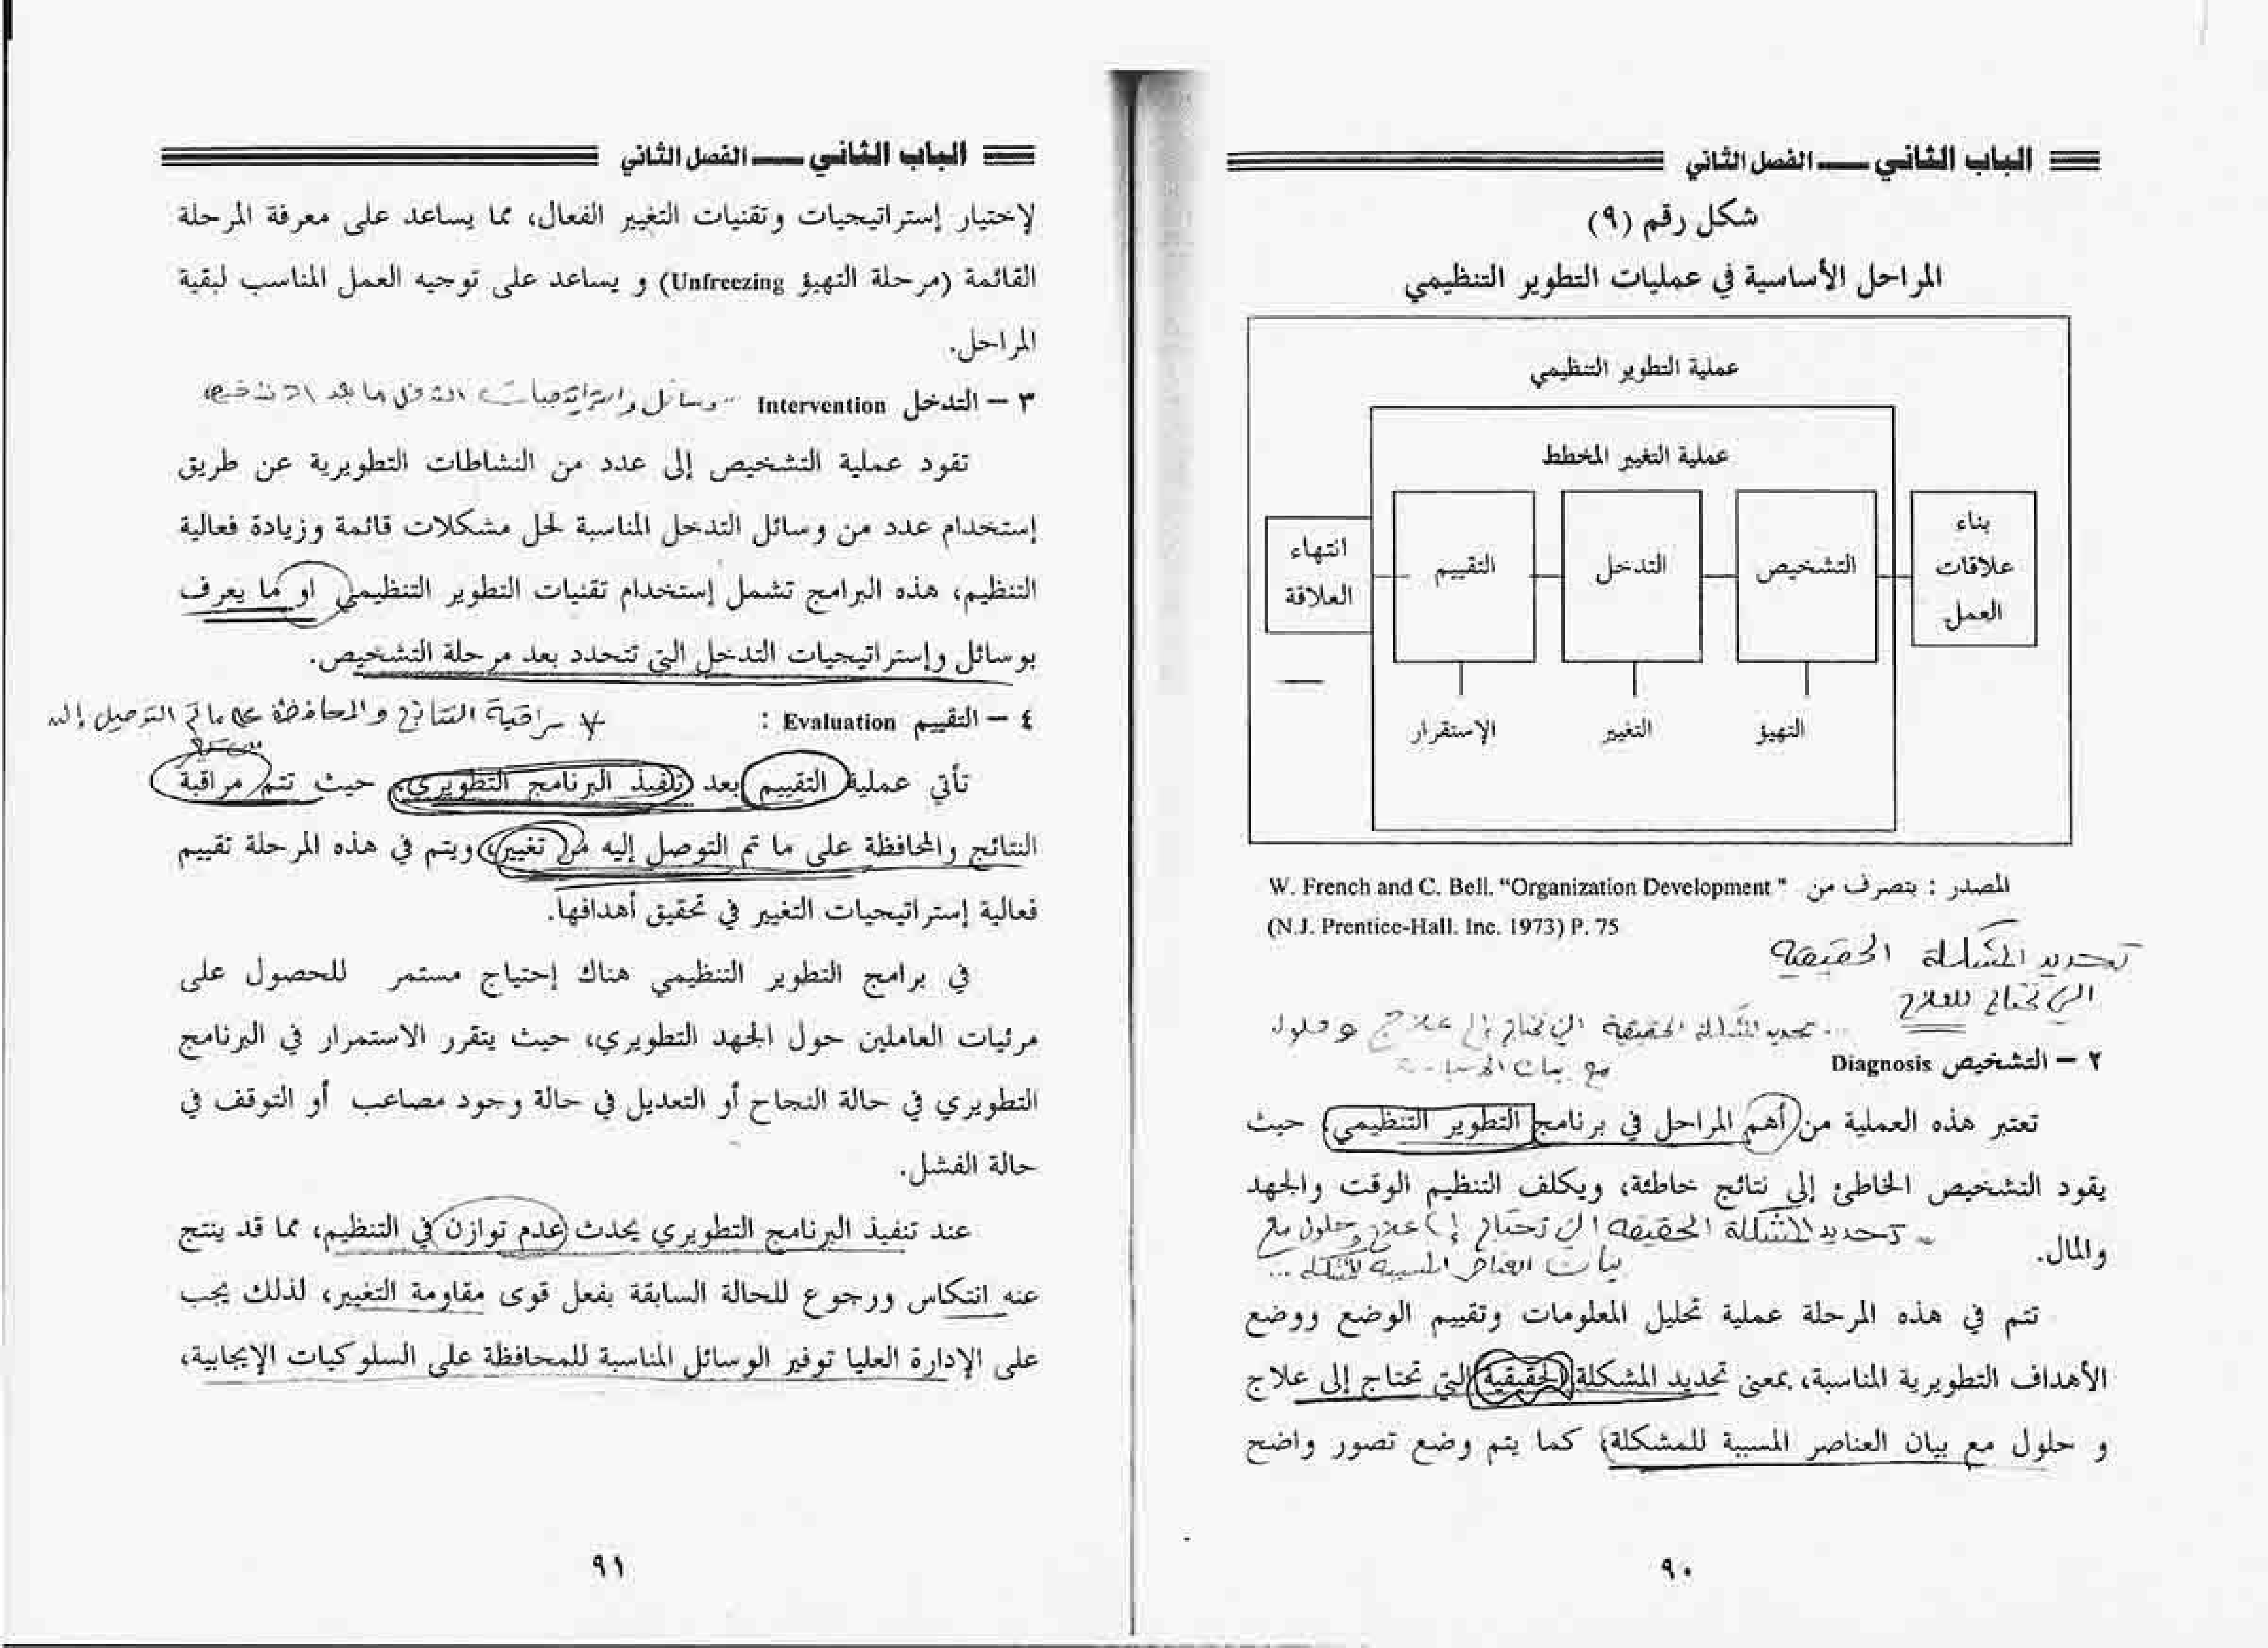 الباب الثاني — الفصل الثاني
شكل رقم (٩)
المراحل الأساسية في عمليات التطوير التنظيمي
عملية التطوير التنظيمي
عملية التغيير المخطط
بناء
علاقات
العمل
التشخيص
التدخل
التقييم
انتهاء
العلاقة
التهيؤ
التغيير
الإستقرار
المصدر : بتصرف من W. French and C. Bell. “Organization Development ”
(N.J. Prentice-Hall. Inc. 1973) P. 75
تحديد المشكلة الحقيقية
التي تحتاج للعلاج
تحديد المشكلة الحقيقية التي تحتاج إلى علاج و حلول
مع بيان
٢ – التشخيص Diagnosis
تعتبر هذه العملية من أهم المراحل في برنامج التطوير التنظيمي، حيث
يقود التشخيص الخاطئ إلى نتائج خاطئة، ويكلف التنظيم الوقت والجهد
والمال.
تحديد المشكلة الحقيقية التي تحتاج إلى علاج وحلول مع
بيان العناصر المسببة للمشكلة ...
تتم في هذه المرحلة عملية تحليل المعلومات وتقييم الوضع ووضع
الأهداف التطويرية المناسبة، بمعنى تحديد المشكلة الحقيقية التي تحتاج إلى علاج
و حلول مع بيان العناصر المسببة للمشكلة، كما يتم وضع تصور واضح
٩٠
الباب الثاني — الفصل الثاني
لإختيار إستراتيجيات وتقنيات التغيير الفعال، مما يساعد على معرفة المرحلة
القائمة (مرحلة التهيؤ Unfreezing) و يساعد على توجيه العمل المناسب لبقية
المراحل.
٣ – التدخل Intervention وسائل واستراتيجيات التدخل ما بعد التشخيص
تقود عملية التشخيص إلى عدد من النشاطات التطويرية عن طريق
إستخدام عدد من وسائل التدخل المناسبة لحل مشكلات قائمة وزيادة فعالية
التنظيم، هذه البرامج تشمل إستخدام تقنيات التطوير التنظيمي او ما يعرف
بوسائل وإستراتيجيات التدخل التي تتحدد بعد مرحلة التشخيص.
٤ – التقييم Evaluation : مراقبة النتائج والمحافظة على ما تم التوصل إليه
تأتي عملية التقييم بعد تنفيذ البرنامج التطويري، حيث تتم مراقبة
النتائج والمحافظة على ما تم التوصل إليه من تغيير، ويتم في هذه المرحلة تقييم
فعالية إستراتيجيات التغيير في تحقيق أهدافها.
في برامج التطوير التنظيمي هناك إحتياج مستمر للحصول على
مرئيات العاملين حول الجهد التطويري، حيث يتقرر الاستمرار في البرنامج
التطويري في حالة النجاح أو التعديل في حالة وجود مصاعب أو التوقف في
حالة الفشل.
عند تنفيذ البرنامج التطويري يحدث عدم توازن في التنظيم، مما قد ينتج
عنه انتكاس ورجوع للحالة السابقة بفعل قوى مقاومة التغيير، لذلك يجب
على الإدارة العليا توفير الوسائل المناسبة للمحافظة على السلوكيات الإيجابية،
٩١